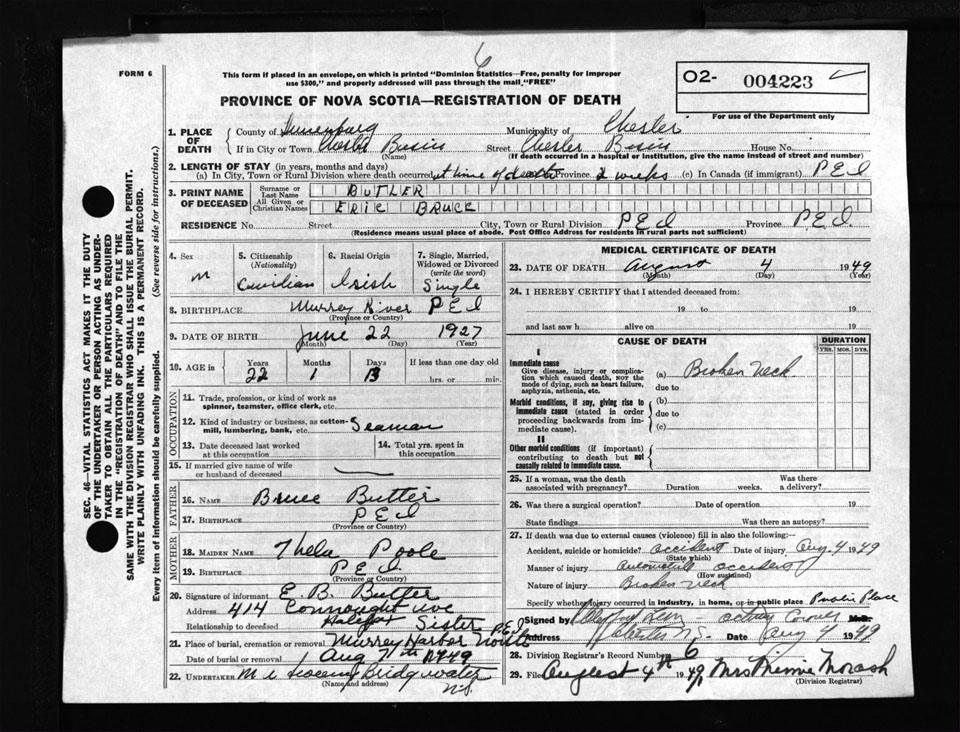 6
FORM 6
This form if placed in an envelope, on which is printed "Dominion Statistics—Free, penalty for improper
use $300," and properly addressed will pass through the mail "FREE"
O2- 004223
PROVINCE OF NOVA SCOTIA—REGISTRATION OF DEATH
For use of the Department only
1. PLACE OF DEATH
County of Lunenburg Municipality of Chester
If in City or Town Chester Basin Street Chester Basin House No.
(Name) (If death occurred in a hospital or institution, give the name instead of street and number)
2. LENGTH OF STAY (in years, months and days)
(a) In City, Town or Rural Division where death occurred at time of death Province 2 weeks (c) In Canada (if immigrant) P E I
3. PRINT NAME OF DECEASED
Surname or Last Name BUTLER
All Given or Christian Names ERIC BRUCE
RESIDENCE No. Street City, Town or Rural Division P E I Province P. E. I
(Residence means usual place of abode. Post Office Address for residents in rural parts not sufficient)
4. Sex m
5. Citizenship (Nationality)
6. Racial Origin Irish
7. Single, Married, Widowed or Divorced (write the word) Single
8. BIRTHPLACE Murray River P E I
(Province or Country)
9. DATE OF BIRTH June 22 1927
(Month) (Day) (Year)
10. AGE in Years 22 Months 1 Days 13 If less than one day old
hrs. or min.
OCCUPATION
11. Trade, profession, or kind of work as
spinner, teamster, office clerk, etc.
12. Kind of industry or business, as cotton-
mill, lumbering, bank, etc. Seaman
13. Date deceased last worked
at this occupation
14. Total yrs. spent in
this occupation
15. If married give name of wife
or husband of deceased
FATHER
16. NAME Bruce Butler
17. BIRTHPLACE P E I
(Province or Country)
MOTHER
18. MAIDEN NAME Thela Poole
19. BIRTHPLACE P E I.
(Province or Country)
20. Signature of informant E. B. Butler
Address 414 Connought ave
Halifax
Relationship to deceased Sister
21. Place of burial, cremation or removal Murrey Harbor North P.E.I
Date of burial or removal Aug 7th 1949
22. UNDERTAKER Bridgwater
(Name and address) N.S.
MEDICAL CERTIFICATE OF DEATH
23. DATE OF DEATH August 4 1949
(Month) (Day) (Year)
24. I HEREBY CERTIFY that I attended deceased from:
19 to 19
and last saw h alive on 19
CAUSE OF DEATH
DURATION
YRS. MOS. DYS.
I
Immediate cause
Give disease, injury or complica-
tion which caused death, NOT the
mode of dying, such as heart failure,
asphyxia, asthenia, etc.
(a) Broken neck
due to
Morbid conditions, if any, giving rise to
immediate cause (stated in order
proceeding backwards from im-
mediate cause).
(b)
due to
(c)
II
Other morbid conditions (if important)
contributing to death but not
causally related to immediate cause.
25. If a woman, was the death
associated with pregnancy? Duration weeks. Was there
a delivery?
26. Was there a surgical operation? Date of operation 19
State findings Was there an autopsy?
27. If death was due to external causes (violence) fill in also the following:
Accident, suicide or homicide? accident Date of injury Aug. 4 1949
(State which)
Manner of injury automobile accident
(How sustained)
Nature of injury Broken neck
Specify whether injury occurred in industry, in home, or in public place Public Place
Signed by acting Coroner
Address Chester N.S. Date Aug 4 1949
28. Division Registrar's Record Number 6
29. Filed August 4th 1949 Mrs Minnie Morash
(Division Registrar)
SEC. 46—VITAL STATISTICS ACT MAKES IT THE DUTY
OF THE UNDERTAKER OR PERSON ACTING AS UNDER-
TAKER TO OBTAIN ALL THE PARTICULARS REQUIRED
IN THE "REGISTRATION OF DEATH" AND TO FILE THE
SAME WITH THE DIVISION REGISTRAR WHO SHALL ISSUE THE BURIAL PERMIT.
WRITE PLAINLY WITH UNFADING INK. THIS IS A PERMANENT RECORD.
Every item of information should be carefully supplied. (See reverse side for instructions.)